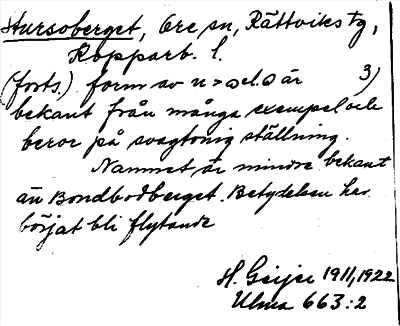 Hursoberget, Ore sn, Rättviks tg,
Kopparb. l.
(forts.) form av u > o el. o är 3)
bekant från många exempel och
beror på svagtonig ställning.
Namnet är mindre bekant
än Bondbodberget. Betydelsen har
börjat bli flytande
H. Geijer 1911, 1922
Ulma 663:2